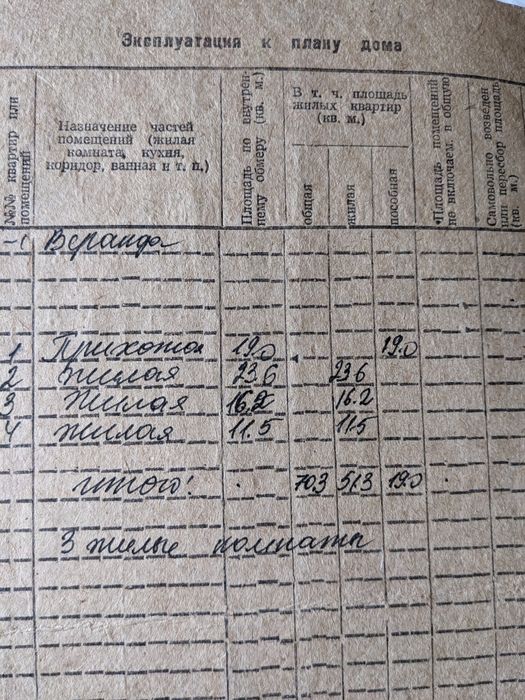 Эксплуатация к плану дома
№№ квартир или помещений
Назначение частей помещений (жилая комната, кухня, коридор, ванная и т. п.)
Площадь по внутреннему обмеру (кв. м.)
В т. ч. площадь жилых квартир (кв. м.)
общая
жилая
пособная
Площадь помещений не включаем. в общую
Самовольно возведен или пересбор площадь (кв. м.)
Веранда
1 Прихожая 19.0 19.0
2 жилая 23.6 23.6
3 жилая 16.2 16.2
4 жилая 11.5 11.5
итого: 703 513 190
3 жилые комнаты